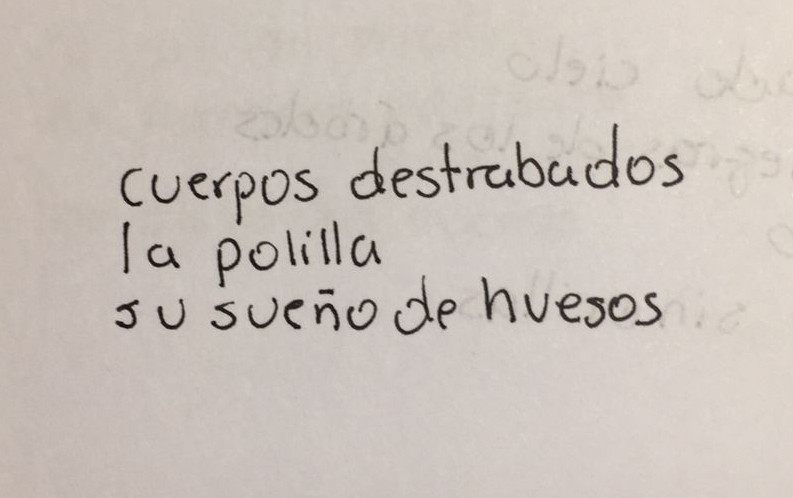 cuerpos destrabados
la polilla
su sueño de huesos